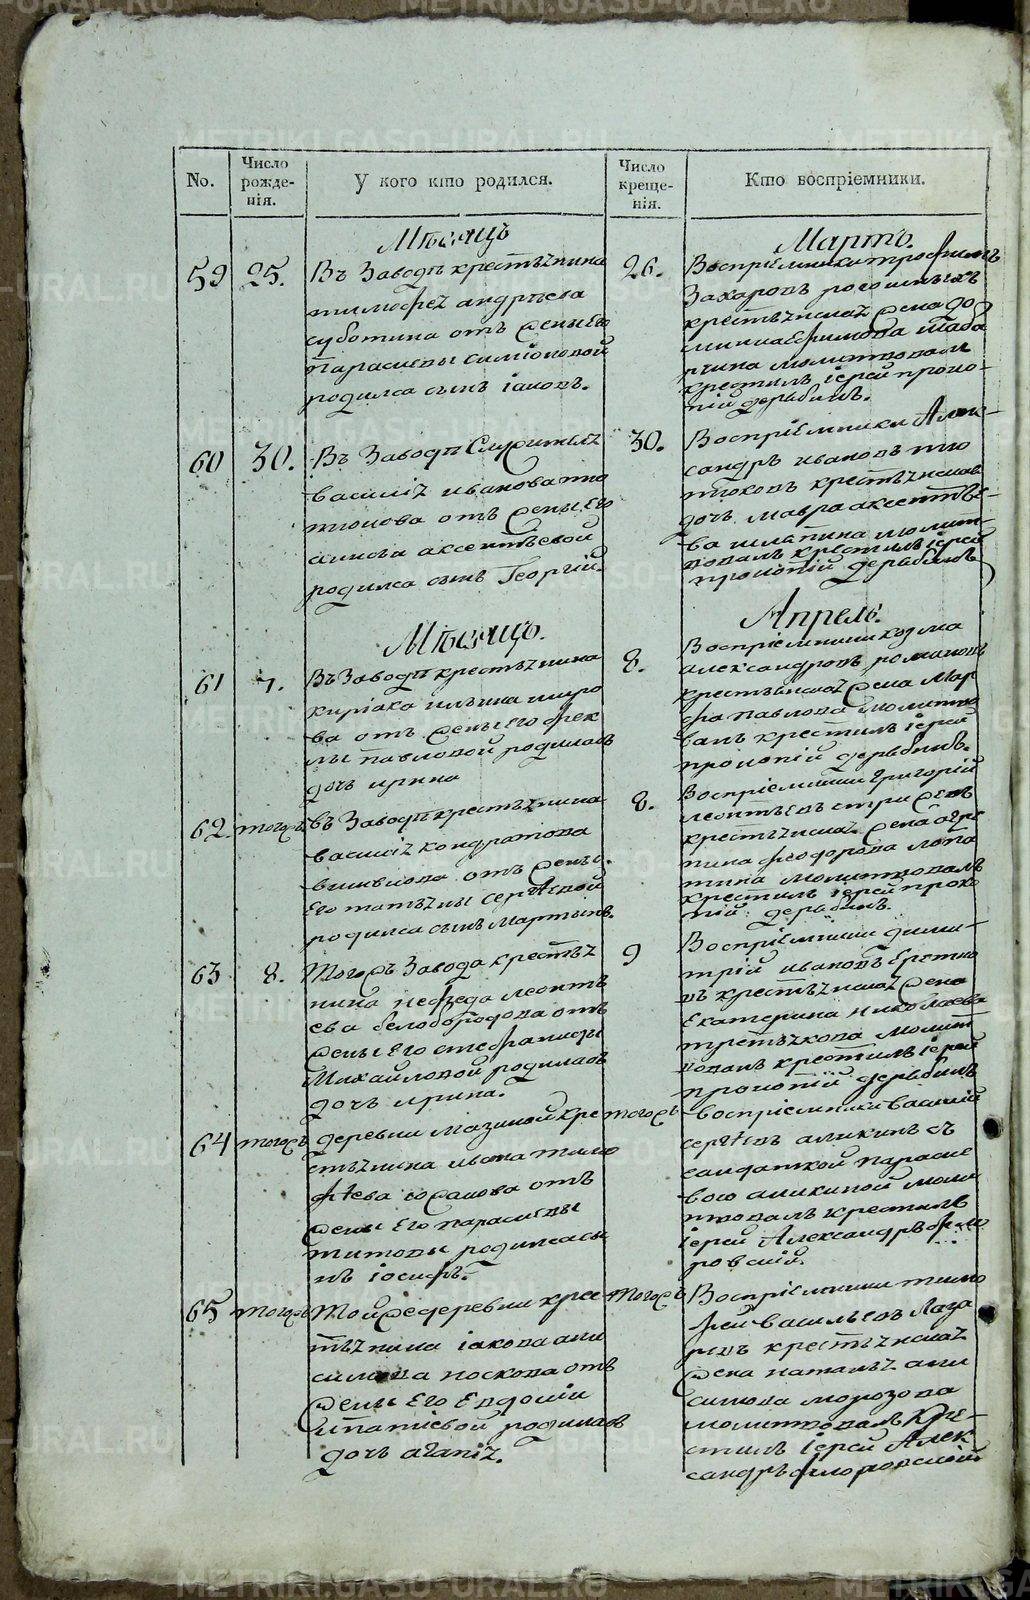 No.
Число рожде-нія.
У кого кто родился.
Число креще-нія.
Кто воспріемники.
Мѣсяцъ
Мартъ.
59
25.
Въ Заводѣ крестьянина
тимофея андрѣева
суботина отъ жены его
Парасковы симіоновой
родился сынъ іаковъ.
26.
Воспріемники трофимъ
Захаровъ
крестьянская жена до
мна ефимова
молитвовалъ
крестилъ іерей проко-
пій дерябинъ.
60
30.
Въ Заводѣ Служителя
василія иванова тю
тюкова отъ жены его
аксентьевой
родился сынъ Георгій.
30.
Воспріемники Алек-
сандръ ивановъ тю
тюковъ крестьянская
дочь мавра аксентье-
ва молит-
вовалъ крестилъ іерей
прокопій дерябинъ
Мѣсяцъ.
Апрель.
61
7.
Въ Заводѣ крестьянина
киріака ильина широ
ва отъ жены его фек
лы павловой родилась
дочь ирина
8.
Воспріемники козма
александровъ романовъ
крестьянская жена мар
фа павлова молитво
валъ крестилъ іерей
прокопій дерябинъ.
62.
тогожъ
въ Заводѣ крестьянина
василія кондратова
отъ жены
его татьяны сергѣевой
родился сынъ мартынъ.
8.
Воспріемники григорій
леонтьевъ
крестьянская жена агре
пина феодорова лопа
тина молитвовалъ
крестилъ іерей проко
пій дерябинъ.
63
8.
Тогожъ Завода крестья
нина нефеда леонтъ
ева белобородова отъ
жены его стефаниды
Михайловой родилась
дочь ирина.
9
Воспріемники дими-
трій ивановъ
въ крестьянская жена
екатерина николаева
третьякова молит
вовалъ крестилъ іерей
прокопій дерябинъ
64
тогожъ
деревни мазиной кре
стьянина ивана тимо
фѣева отъ
жены его парасковы
титовы родился сы
нъ іосифъ.
тогожъ
воспріемники василій
сергѣевъ аликинъ съ
салдаткой параске
вою аликиной моли
твовалъ крестилъ
іерей Александръ фло
ровскій.
65
тогожъ
Той же деревни крес
тьянина іакова ани
симова носкова отъ
жены его евдокіи
ипатіевой родилась
дочь агапія.
тогожъ
Воспріемники тимо
фей васильевъ лаза
ревъ крестьянская
жена наталья ани
симова морозова
молитвовалъ кре-
стилъ іерей Алек
сандръ флоровской